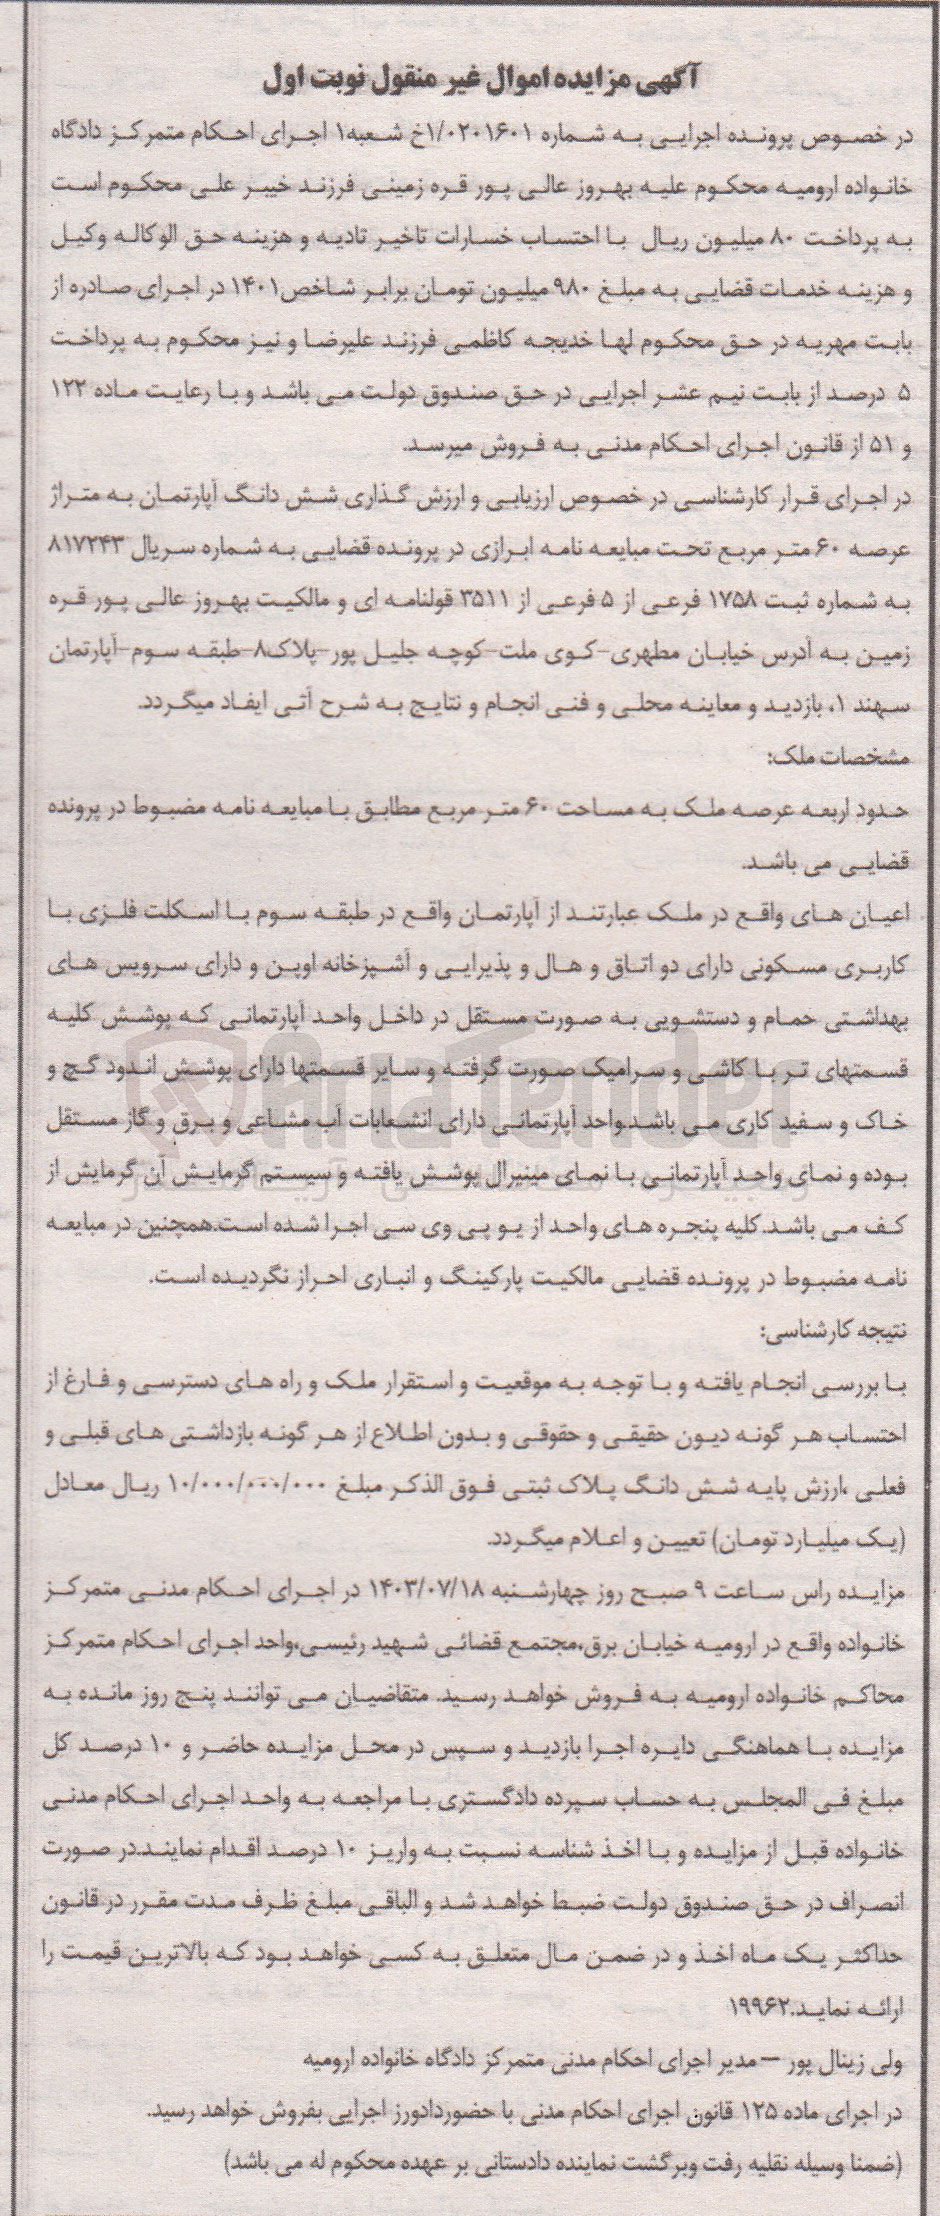 آگهی مزایده اموال غیر منقول نوبت اول
در خصوص پرونده اجرایی به شماره ۱/۰۲۰۱۶۰۱خ شعبه۱ اجرای احکام متمرکز دادگاه
خانواده ارومیه محکوم علیه بهروز عالی پور قره زمینی فرزند خیبر علی محکوم است
به پرداخت ۸۰ میلیون ریال با احتساب خسارات تاخیر تادیه و هزینه حق الوکاله وکیل
و هزینه خدمات قضایی به مبلغ ۹۸۰ میلیون تومان برابر شاخص۱۴۰۱ در اجرای صادره از
بابت مهریه در حق محکوم لها خدیجه کاظمی فرزند علیرضا و نیز محکوم به پرداخت
۵ درصد از بابت نیم عشر اجرایی در حق صندوق دولت می باشد و با رعایت ماده ۱۲۲
و ۵۱ از قانون اجرای احکام مدنی به فروش میرسد.
در اجرای قرار کارشناسی در خصوص ارزیابی و ارزش گذاری شش دانگ آپارتمان به متراژ
عرصه ۶۰ متر مربع تحت مبایعه نامه ابرازی در پرونده قضایی به شماره سریال ۸۱۷۲۴۳
به شماره ثبت ۱۷۵۸ فرعی از ۵ فرعی از ۳۵۱۱ قولنامه ای و مالکیت بهروز عالی پور قره
زمین به آدرس خیابان مطهری-کوی ملت-کوچه جلیل پور-پلاک۸-طبقه سوم-آپارتمان
سهند ۱، بازدید و معاینه محلی و فنی انجام و نتایج به شرح آتی ایفاد میگردد.
مشخصات ملک:
حدود اربعه عرصه ملک به مساحت ۶۰ متر مربع مطابق با مبایعه نامه مضبوط در پرونده
قضایی می باشد.
اعیان های واقع در ملک عبارتند از آپارتمان واقع در طبقه سوم با اسکلت فلزی با
کاربری مسکونی دارای دو اتاق و هال و پذیرایی و آشپزخانه اوپن و دارای سرویس های
بهداشتی حمام و دستشویی به صورت مستقل در داخل واحد آپارتمانی که پوشش کلیه
قسمتهای تر با کاشی و سرامیک صورت گرفته و سایر قسمتها دارای پوشش اندود گچ و
خاک و سفید کاری می باشد.واحد آپارتمانی دارای انشعابات آب مشاعی و برق و گاز مستقل
بوده و نمای واحد آپارتمانی با نمای مینیرال پوشش یافته و سیستم گرمایش آن گرمایش از
کف می باشد.کلیه پنجره های واحد از یو پی وی سی اجرا شده است.همچنین در مبایعه
نامه مضبوط در پرونده قضایی مالکیت پارکینگ و انباری احراز نگردیده است.
نتیجه کارشناسی:
با بررسی انجام یافته و با توجه به موقعیت و استقرار ملک و راه های دسترسی و فارغ از
احتساب هر گونه دیون حقیقی و حقوقی و بدون اطلاع از هر گونه بازداشتی های قبلی و
فعلی ،ارزش پایه شش دانگ پلاک ثبتی فوق الذکر مبلغ ۱۰/۰۰۰/۰۰۰/۰۰۰ ریال معادل
(یک میلیارد تومان) تعیین و اعلام میگردد.
مزایده راس ساعت ۹ صبح روز چهارشنبه ۱۴۰۳/۰۷/۱۸ در اجرای احکام مدنی متمرکز
خانواده واقع در ارومیه خیابان برق،مجتمع قضائی شهید رئیسی،واحد اجرای احکام متمرکز
محاکم خانواده ارومیه به فروش خواهد رسید. متقاضیان می توانند پنج روز مانده به
مزایده با هماهنگی دایره اجرا بازدید و سپس در محل مزایده حاضر و ۱۰ درصد کل
مبلغ فی المجلس به حساب سپرده دادگستری با مراجعه به واحد اجرای احکام مدنی
خانواده قبل از مزایده و با اخذ شناسه نسبت به واریز ۱۰ درصد اقدام نمایند.در صورت
انصراف در حق صندوق دولت ضبط خواهد شد و الباقی مبلغ ظرف مدت مقرر در قانون
حداکثر یک ماه اخذ و در ضمن مال متعلق به کسی خواهد بود که بالاترین قیمت را
ارائه نماید.۱۹۹۶۲
ولی زینال پور – مدیر اجرای احکام مدنی متمرکز دادگاه خانواده ارومیه
در اجرای ماده ۱۲۵ قانون اجرای احکام مدنی با حضوردادورز اجرایی بفروش خواهد رسید.
(ضمنا وسیله نقلیه رفت وبرگشت نماینده دادستانی بر عهده محکوم له می باشد)
AriaTender